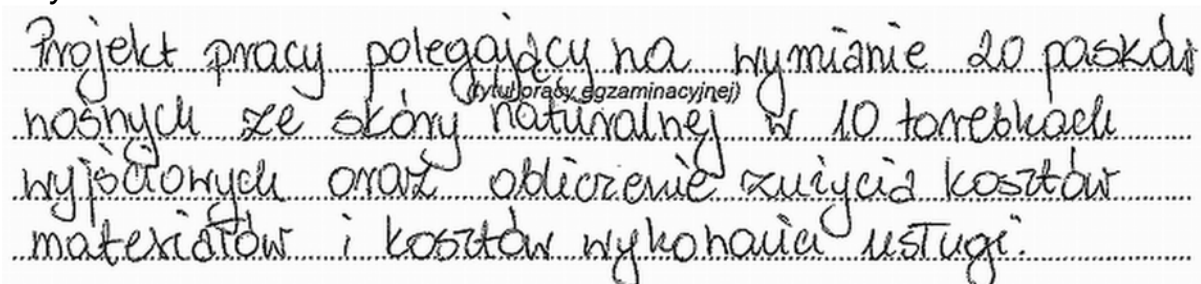 Projekt pracy polegający na wymianie 20 pasków
(tytuł pracy egzaminacyjnej)
nośnych ze skóry naturalnej w 10 torebkach
wyjściowych oraz obliczenie zużycia kosztów
materiałów i kosztów wykonania usługi.